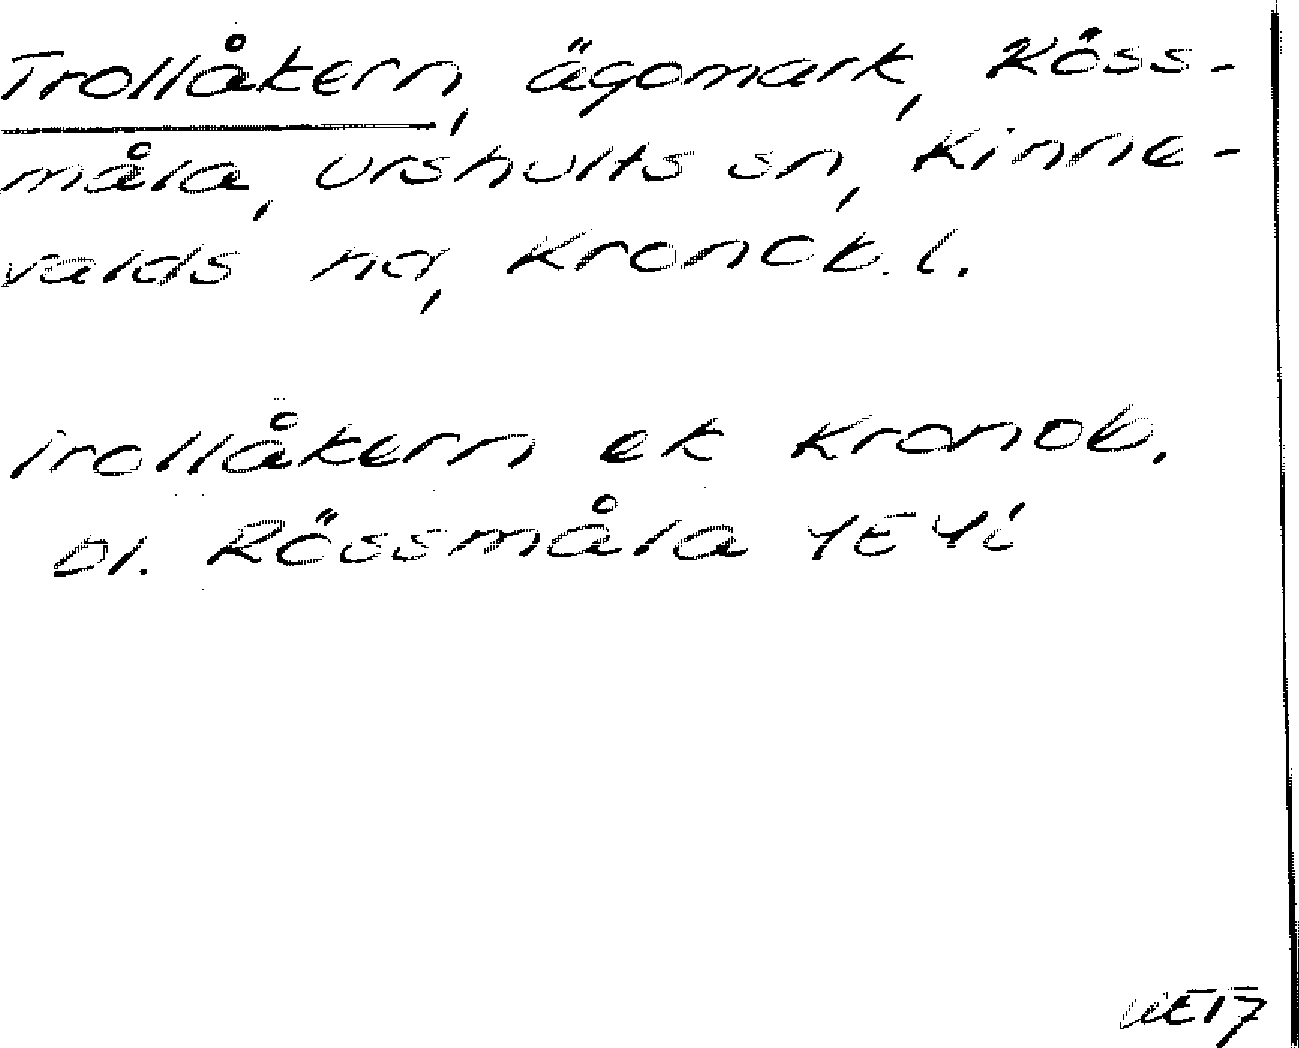 Trollåkern, ägomark, Röss-
måla, Urshults sn, Kinne-
valds hd, Kronob. l.
Trollåkern ek Kronob.
Dl. Rössmåla 4E4i